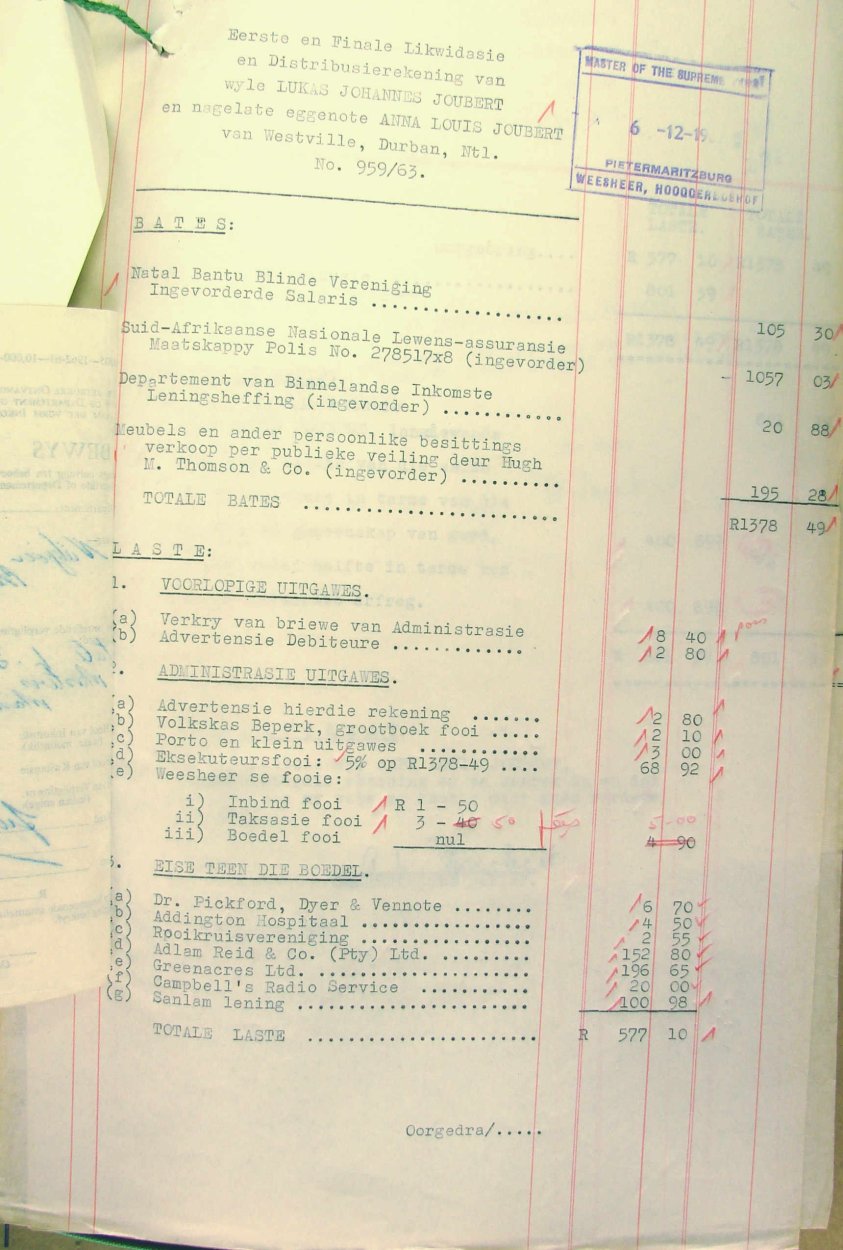 Eerste en Finale Likwidasie
en Distribusierekening van
wyle LUKAS JOHANNES JOUBERT
en nagelate eggenote ANNA LOUIS JOUBERT
van Westville, Durban, Ntl.
No. 959/63.
MASTER OF THE SUPREME
6 -12-19
PIETERMARITZBURG
WEESHEER, HOOGGEREGSHOF
B A T E S:
Natal Bantu Blinde Vereniging
Ingevorderde Salaris ................... 105 30
Suid-Afrikaanse Nasionale Lewens-assuransie
Maatskappy Polis No. 278517x8 (ingevorder) - 1057 03
Departement van Binnelandse Inkomste
Leningsheffing (ingevorder) ............ 20 88
Meubels en ander persoonlike besittings
verkoop per publieke veiling deur Hugh
M. Thomson & Co. (ingevorder) .......... 195 28
TOTALE BATES .......................... R1378 49
L A S T E:
1. VOORLOPIGE UITGAWES.
(a) Verkry van briewe van Administrasie 8 40
(b) Advertensie Debiteure ............. 2 80
2. ADMINISTRASIE UITGAWES.
(a) Advertensie hierdie rekening ....... 2 80
(b) Volkskas Beperk, grootboek fooi ..... 2 10
(c) Porto en klein uitgawes ............ 3 00
(d) Eksekuteursfooi: 5% op R1378-49 .... 68 92
(e) Weesheer se fooie:
i) Inbind fooi R 1 - 50
ii) Taksasie fooi 3 - 40 50 5-00
iii) Boedel fooi nul 4 90
3. EISE TEEN DIE BOEDEL.
(a) Dr. Pickford, Dyer & Vennote ........ 6 70
(b) Addington Hospitaal ................. 4 50
(c) Rooikruisvereniging ................. 2 55
(d) Adlam Reid & Co. (Pty) Ltd. ......... 152 80
(e) Greenacres Ltd. ..................... 196 65
(f) Campbell's Radio Service ........... 20 00
(g) Sanlam lening ....................... 100 98
TOTALE LASTE ........................ R 577 10
Oorgedra/.....